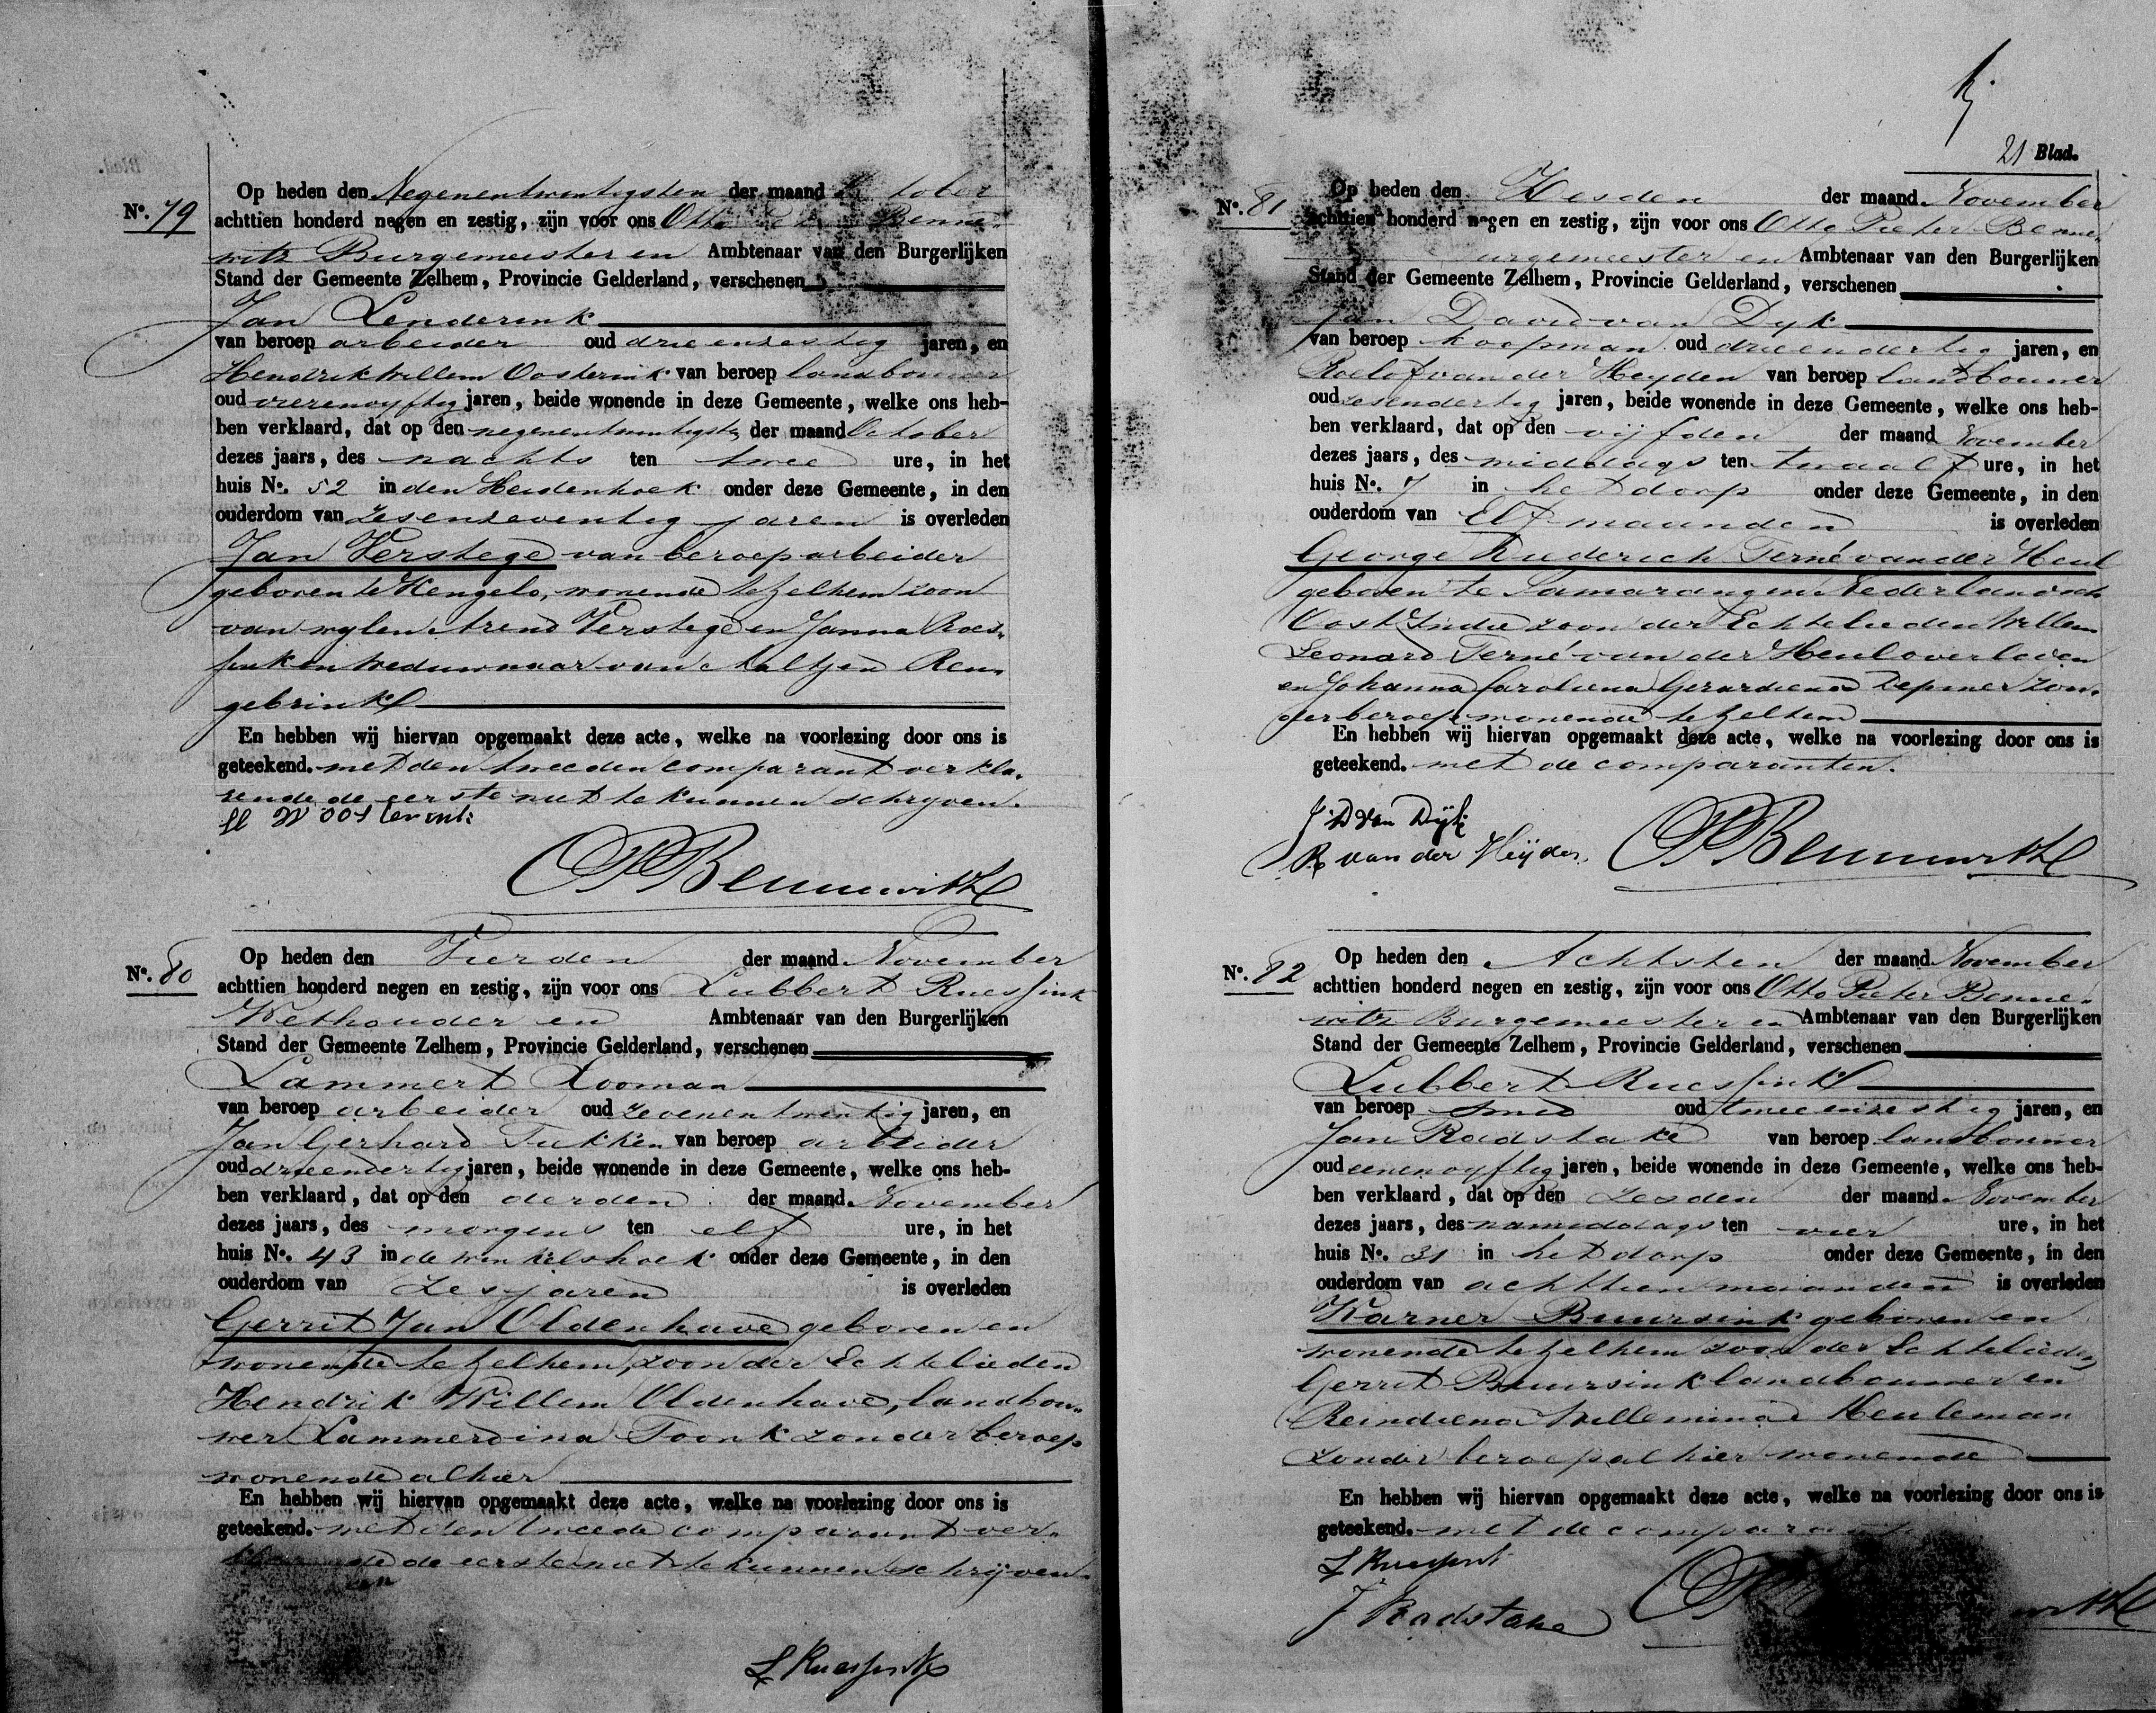 Op heden den Negenentwintigsten der maand October
No. 79 achttien honderd negen en zestig, zijn voor ons Otto Benne-
witz Burgemeester en Ambtenaar van den Burgerlijken
Stand der Gemeente Zelhem, Provincie Gelderland, verschenen
Jan Lenderink
van beroep arbeider oud drieenzestig jaren, en
Hendrik Willem Oosterink van beroep landbouwer
oud vierenvyftig jaren, beide wonende in deze Gemeente, welke ons heb-
ben verklaard, dat op den negenentwintigsten der maand October
dezes jaars, des nachts ten twee ure, in het
huis No. 52 in den Heidenhoek onder deze Gemeente, in den
ouderdom van zesenzeventig jaren is overleden
Jan Verstege van beroep arbeider
geboren te Hengelo, wonende te Zelhem zoon
van wylen Arend Verstege en Janna Roes-
sink en weduwnaar van Aaltjen Ren-
gebrink
En hebben wij hiervan opgemaakt deze acte, welke na voorlezing door ons is
geteekend. met den tweeden comparant verkla-
rende de eerste niet te kunnen schryven.
H W Oosterink
OPBennewitz
Op heden den Vierden der maand November
No. 80 achttien honderd negen en zestig, zijn voor ons Lubbert Ruessink
Wethouder en Ambtenaar van den Burgerlijken
Stand der Gemeente Zelhem, Provincie Gelderland, verschenen
Lammert Looman
van beroep arbeider oud zevenentwintig jaren, en
Jan Gerhard Tukken van beroep arbeider
oud drieendertig jaren, beide wonende in deze Gemeente, welke ons heb-
ben verklaard, dat op den derden der maand November
dezes jaars, des morgens ten elf ure, in het
huis No. 43 in de winkelshoek onder deze Gemeente, in den
ouderdom van Zes jaren is overleden
Gerrit Jan Oldenhave geboren en
wonende te Zelhem, zoon der Echtelieden
Hendrik Willem Oldenhave, landbou-
wer Lammerdina Toonk zonder beroep
wonende alhier
En hebben wij hiervan opgemaakt deze acte, welke na voorlezing door ons is
geteekend. met den tweede comparant ver-
de eerste niet te kunnen schrijven.
L Ruessink
21 Blad.
Op heden den Zesden der maand November
No. 81 achttien honderd negen en zestig, zijn voor ons Otto Pieter Benne-
urgemeester en Ambtenaar van den Burgerlijken
Stand der Gemeente Zelhem, Provincie Gelderland, verschenen
Jan David van Dyk
van beroep koopman oud drieendertig jaren, en
Roelof van der Heyden van beroep landbouwer
oud zesendertig jaren, beide wonende in deze Gemeente, welke ons heb-
ben verklaard, dat op den vijfden der maand November
dezes jaars, des middags ten twaalf ure, in het
huis No. 7 in het dorp onder deze Gemeente, in den
ouderdom van Elf maanden is overleden
George Terné van der Heul
geboren te Samarang in Nederlandsch
Oost Indie zoon der Echtelieden Willem
Leonard Terné van der Heul overleden
en Johanna Caroliena Gerardiena Depmer zon-
der beroep wonende te Zelhem
En hebben wij hiervan opgemaakt deze acte, welke na voorlezing door ons is
geteekend. met de comparanten.
J D van Dijk
R van der Heijden OPBennewitz
Op heden den Achtsten der maand November
No. 82 achttien honderd negen en zestig, zijn voor ons Otto Pieter Benne-
witz Burgemeester en Ambtenaar van den Burgerlijken
Stand der Gemeente Zelhem, Provincie Gelderland, verschenen
Lubbert Ruessink
van beroep smid oud tweeenzestig jaren, en
Jan Radstake van beroep landbouwer
oud eenenvyftig jaren, beide wonende in deze Gemeente, welke ons heb-
ben verklaard, dat op den zesden der maand November
dezes jaars, des namiddags ten vier ure, in het
huis No. 31 in het dorp onder deze Gemeente, in den
ouderdom van achttien maanden is overleden
Warner Buursink geboren en
wonende te Zelhem zoon der Echtelieden
Gerrit Buursink landbouwer en
Reindiena Willemina Heuleman
zonder beroep alhier wonende
En hebben wij hiervan opgemaakt deze acte, welke na voorlezing door ons is
geteekend. met de
L Ruessink
J Radstake